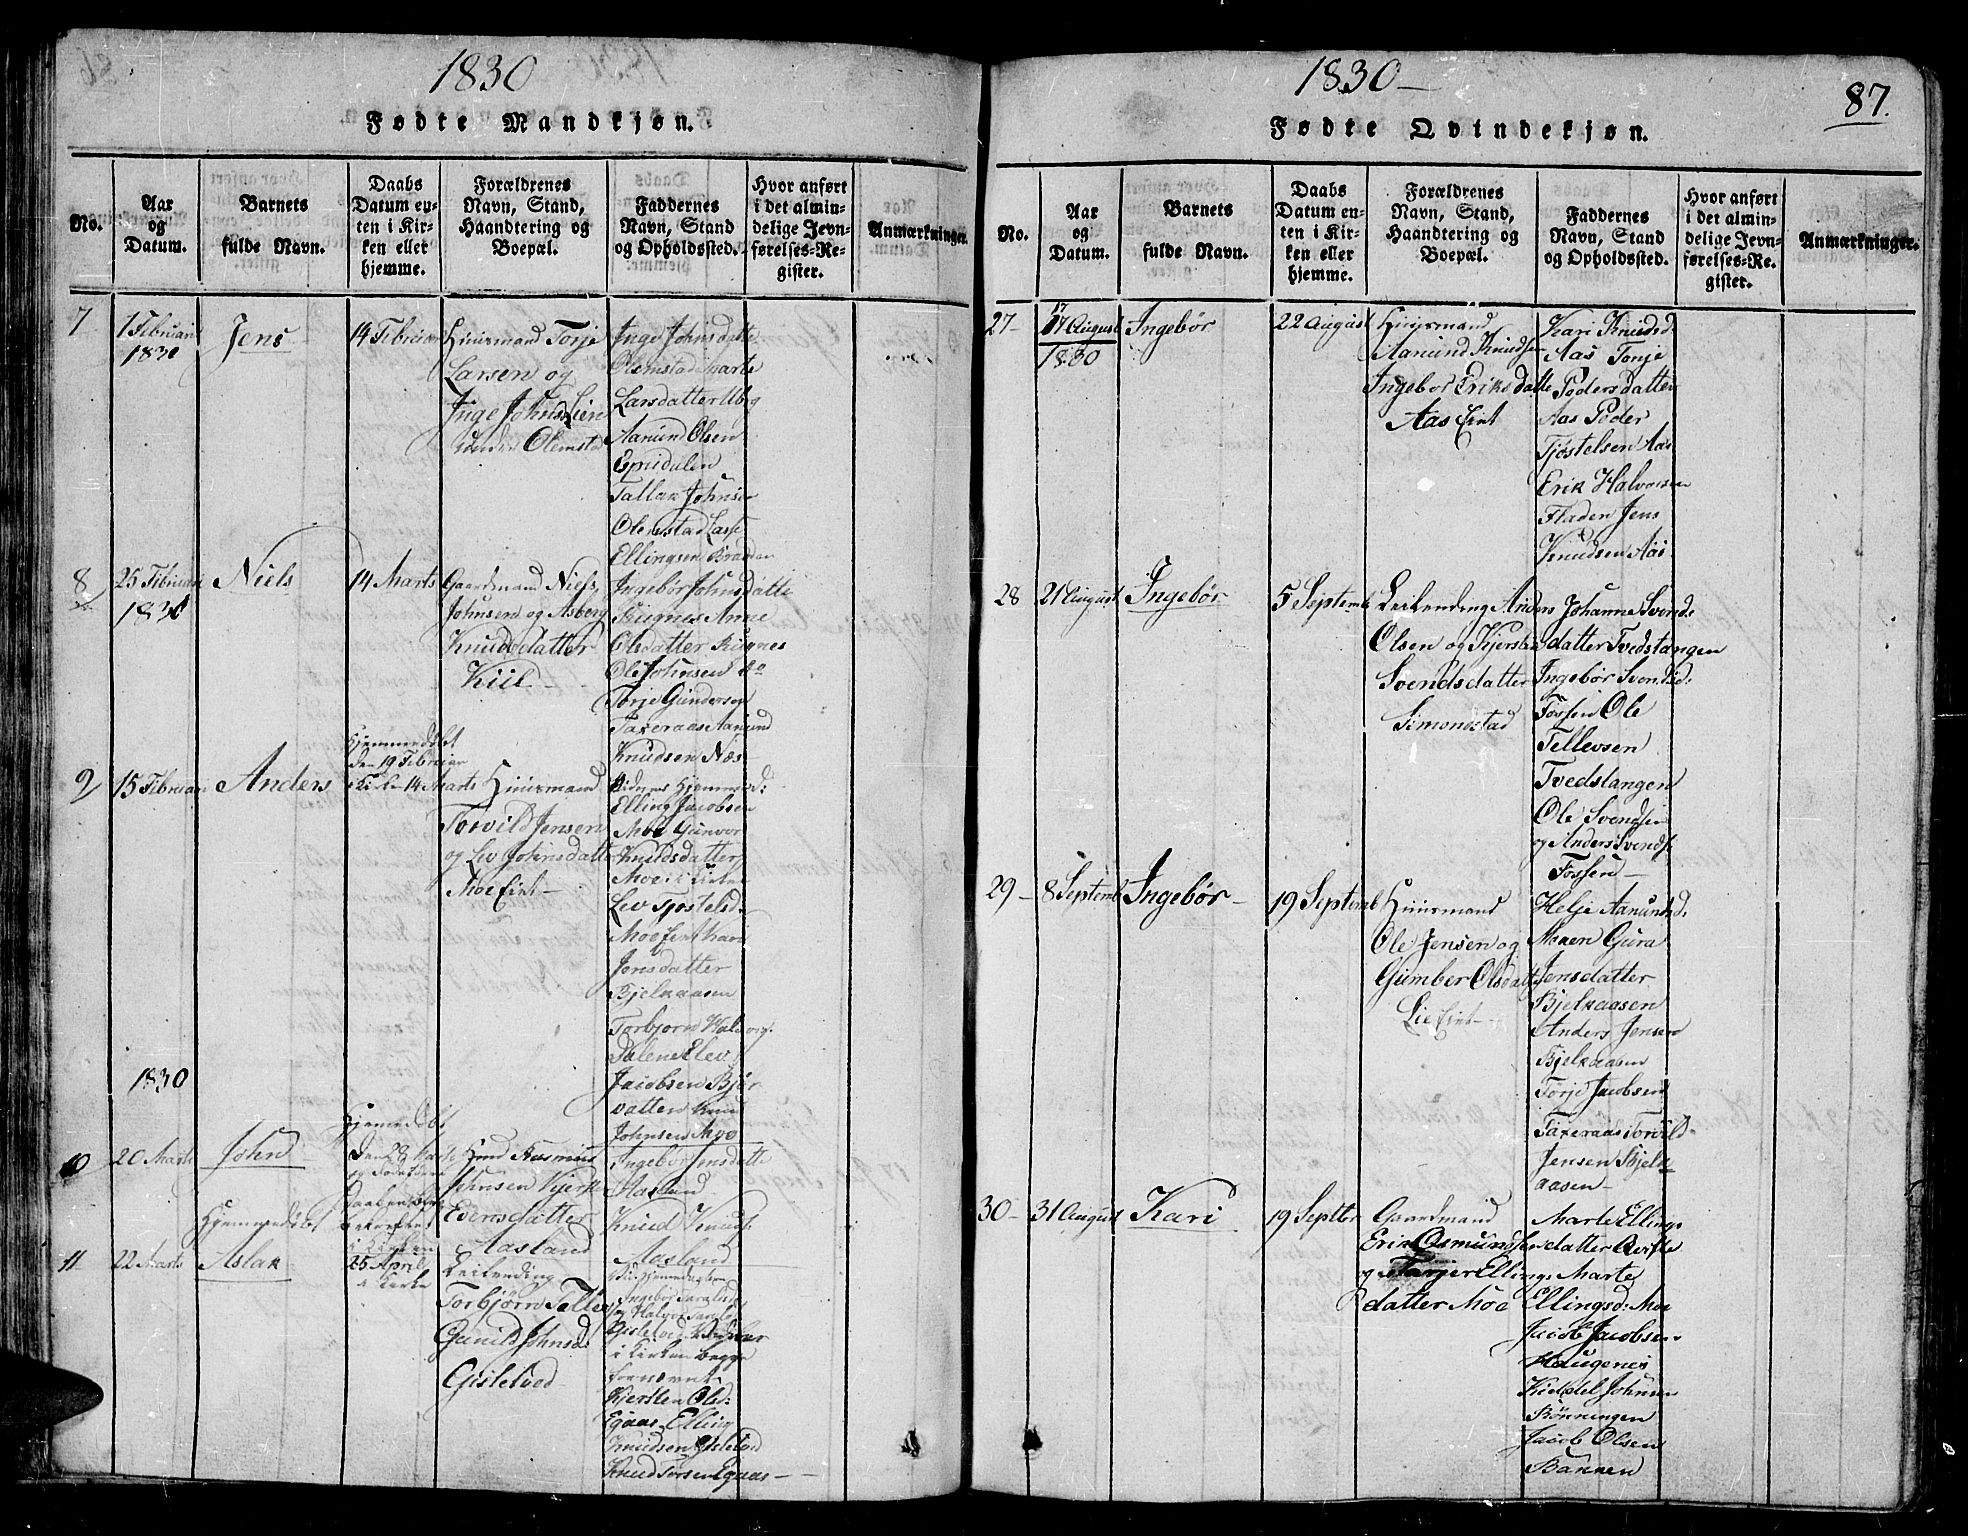 1830
Fødte Mandkjøn.
No.
Aar
og
Datum.
Barnets
fulde Navn.
Daabs
Datum en-
ten i Kir-
ken eller
hjemme.
Forældrenes
Navn, Stand,
Haandtering og
Boepæl.
Faddernes
Navn, Stand
og Opholdssted.
Hvor anført
i det almin-
delige Jevn-
førelses-Re-
gister.
Anmærkninger.
7
1 Februari
1830
Jens
14 Februari
Huusmand Torje
Larsen og
Inge Johnsd. Lien
under Olimstad
Inge Johnsdatte
Olimstad Marte
Larsdatter Ubg
Aanund Olsen
Espidalen
Tallak Johnsen
Olimstad Lasse
Ellingsen Braaten
8
25 Februari
1830
Niels
14 Marts
Gaardsmand Niels
Johnsen og Asberg
Knudsdatter
Kiil
Ingebør Johnsdatte
Rugnes Anne
Olsdatter Rugnes
Ole Johnsen do
Torje Gundersen
Taxeraas Aanund
Knudsen Næs
9
15 Februari
1830
Anders
Hjemmedøbt
den 19 Februar
i Kirken 14 Marts
Huusmand
Torvild Jensen
og Liv Johnsdatte
Moe Eint
Hjemmed:
Elling Jacobsen
Moe Gunvor
Knudsdatter
Moe i Kirken
Liv Tjostelsd.
Moe Eint Kari
Jonsdatter
Bjelkaasen
Torbjorn Halvors:
Dalene Elev
Jacobsen Bjør
vatten Knud
Johnsen Moe
10
20 Marts
John
Hjemmedøbt
den 28 Marts
og
bekræftet
i Kirken
Rasmus
Johnsen Kjerst
Evensdatter
Aasland
Ingebor Jensdatte
Aasland
Knud Knuds
Aasland
11
22 Marts
Aslak
Hjemmedøbt
25 April
i Kirke
Leilending
Torbjørn Tallev
Gunild Johnsd
Gislefoed
Ingebor
Halvor
Gislefoed
i Kirken begge
fornævnt
Kjersten Olsd:
Egaas Elling
Knudsen Gislefoed
Knud Torsen Egaas
1830
87.
Fødte Qvindekjøn.
No.
Aar
og
Datum.
Barnets
fulde Navn.
Daabs
Datum en-
ten i Kir-
ken eller
hjemme.
Forældrenes
Navn, Stand,
Haandtering og
Boepæl.
Faddernes
Navn, Stand
og Opholdssted.
Hvor anført
i det almin-
delige Jevn-
førelses-Re-
gister.
Anmærkninger.
27
17
17 August
1830
Ingebør
22 August
Huusmand
Aanund Knudsen
Ingebor Eriksdatte
Aas Eint
Kari Knudsd:
Aas Tonje
Pedersdatter
Aas Peder
Tjostelsen Aas
Erik Halvorsen
Fladen Jens
Knudsen Aas
28
21 August
Ingebør
5 Septemb
Leilending Anders
Olsen og Kjersten
Svendsdatter
Simonstad
Johanne Svend:
datter Tvedstangen
Ingebør Svendsd:
Fossen Ole
Tellevsen
Tvedstangen
Ole Svendsen
og Anders Svends
Fossen
29
8 Septemb
Ingebør
19 Septemb
Huusmand
Ole Jensen og
Gumber Olsdatte
Lie Eint
Helje Aanundsd:
Moxen Gura
Jensdatter
Bjelkaasen
Anders Jensen
Bjelkaasen
Torje Jacobsen
Taxeraas Torvild
Jensen Bjelk
aasen
30
31 August
Kari
19 Septter
Gaardmand
Erik Osmundsen
og Tarjer Ellings
datter Moe
Marte Ellings
datter Qvifte
Marte
Ellingsd: Moe
Jacob Jacobsen
Haugenes
Kiddel Johnsen
Rønningen
Jacob Olsen
Bakken